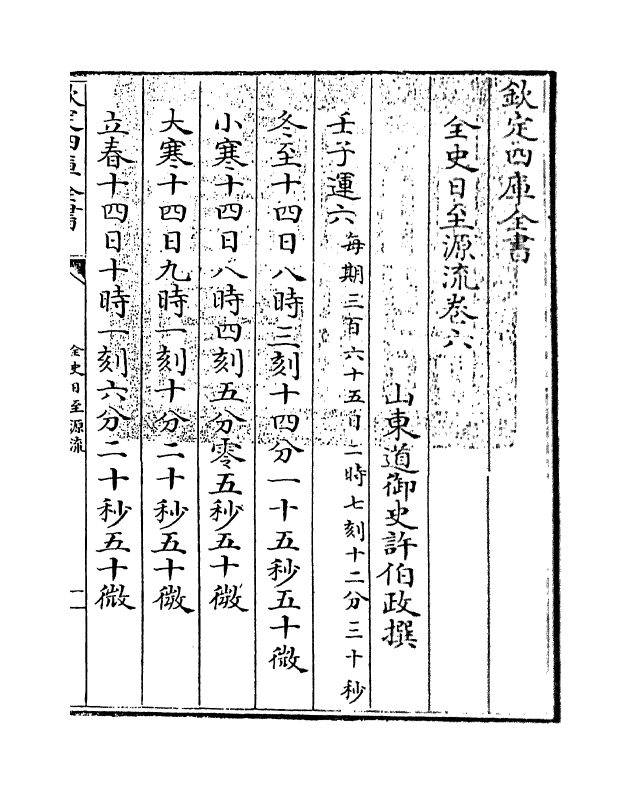 欽定四庫全書
全史日至源流卷六
山東道御史許伯政撰
壬子運六每期三百六十五日二時七刻十二分三十秒
冬至十四日八時三刻十四分一十五秒五十微
小寒十四日八時四刻五分零五秒五十微
大寒十四日九時一刻十分二十秒五十微
立春十四日十時一刻六分二十秒五十微
欽定四庫全書
全史日至源流